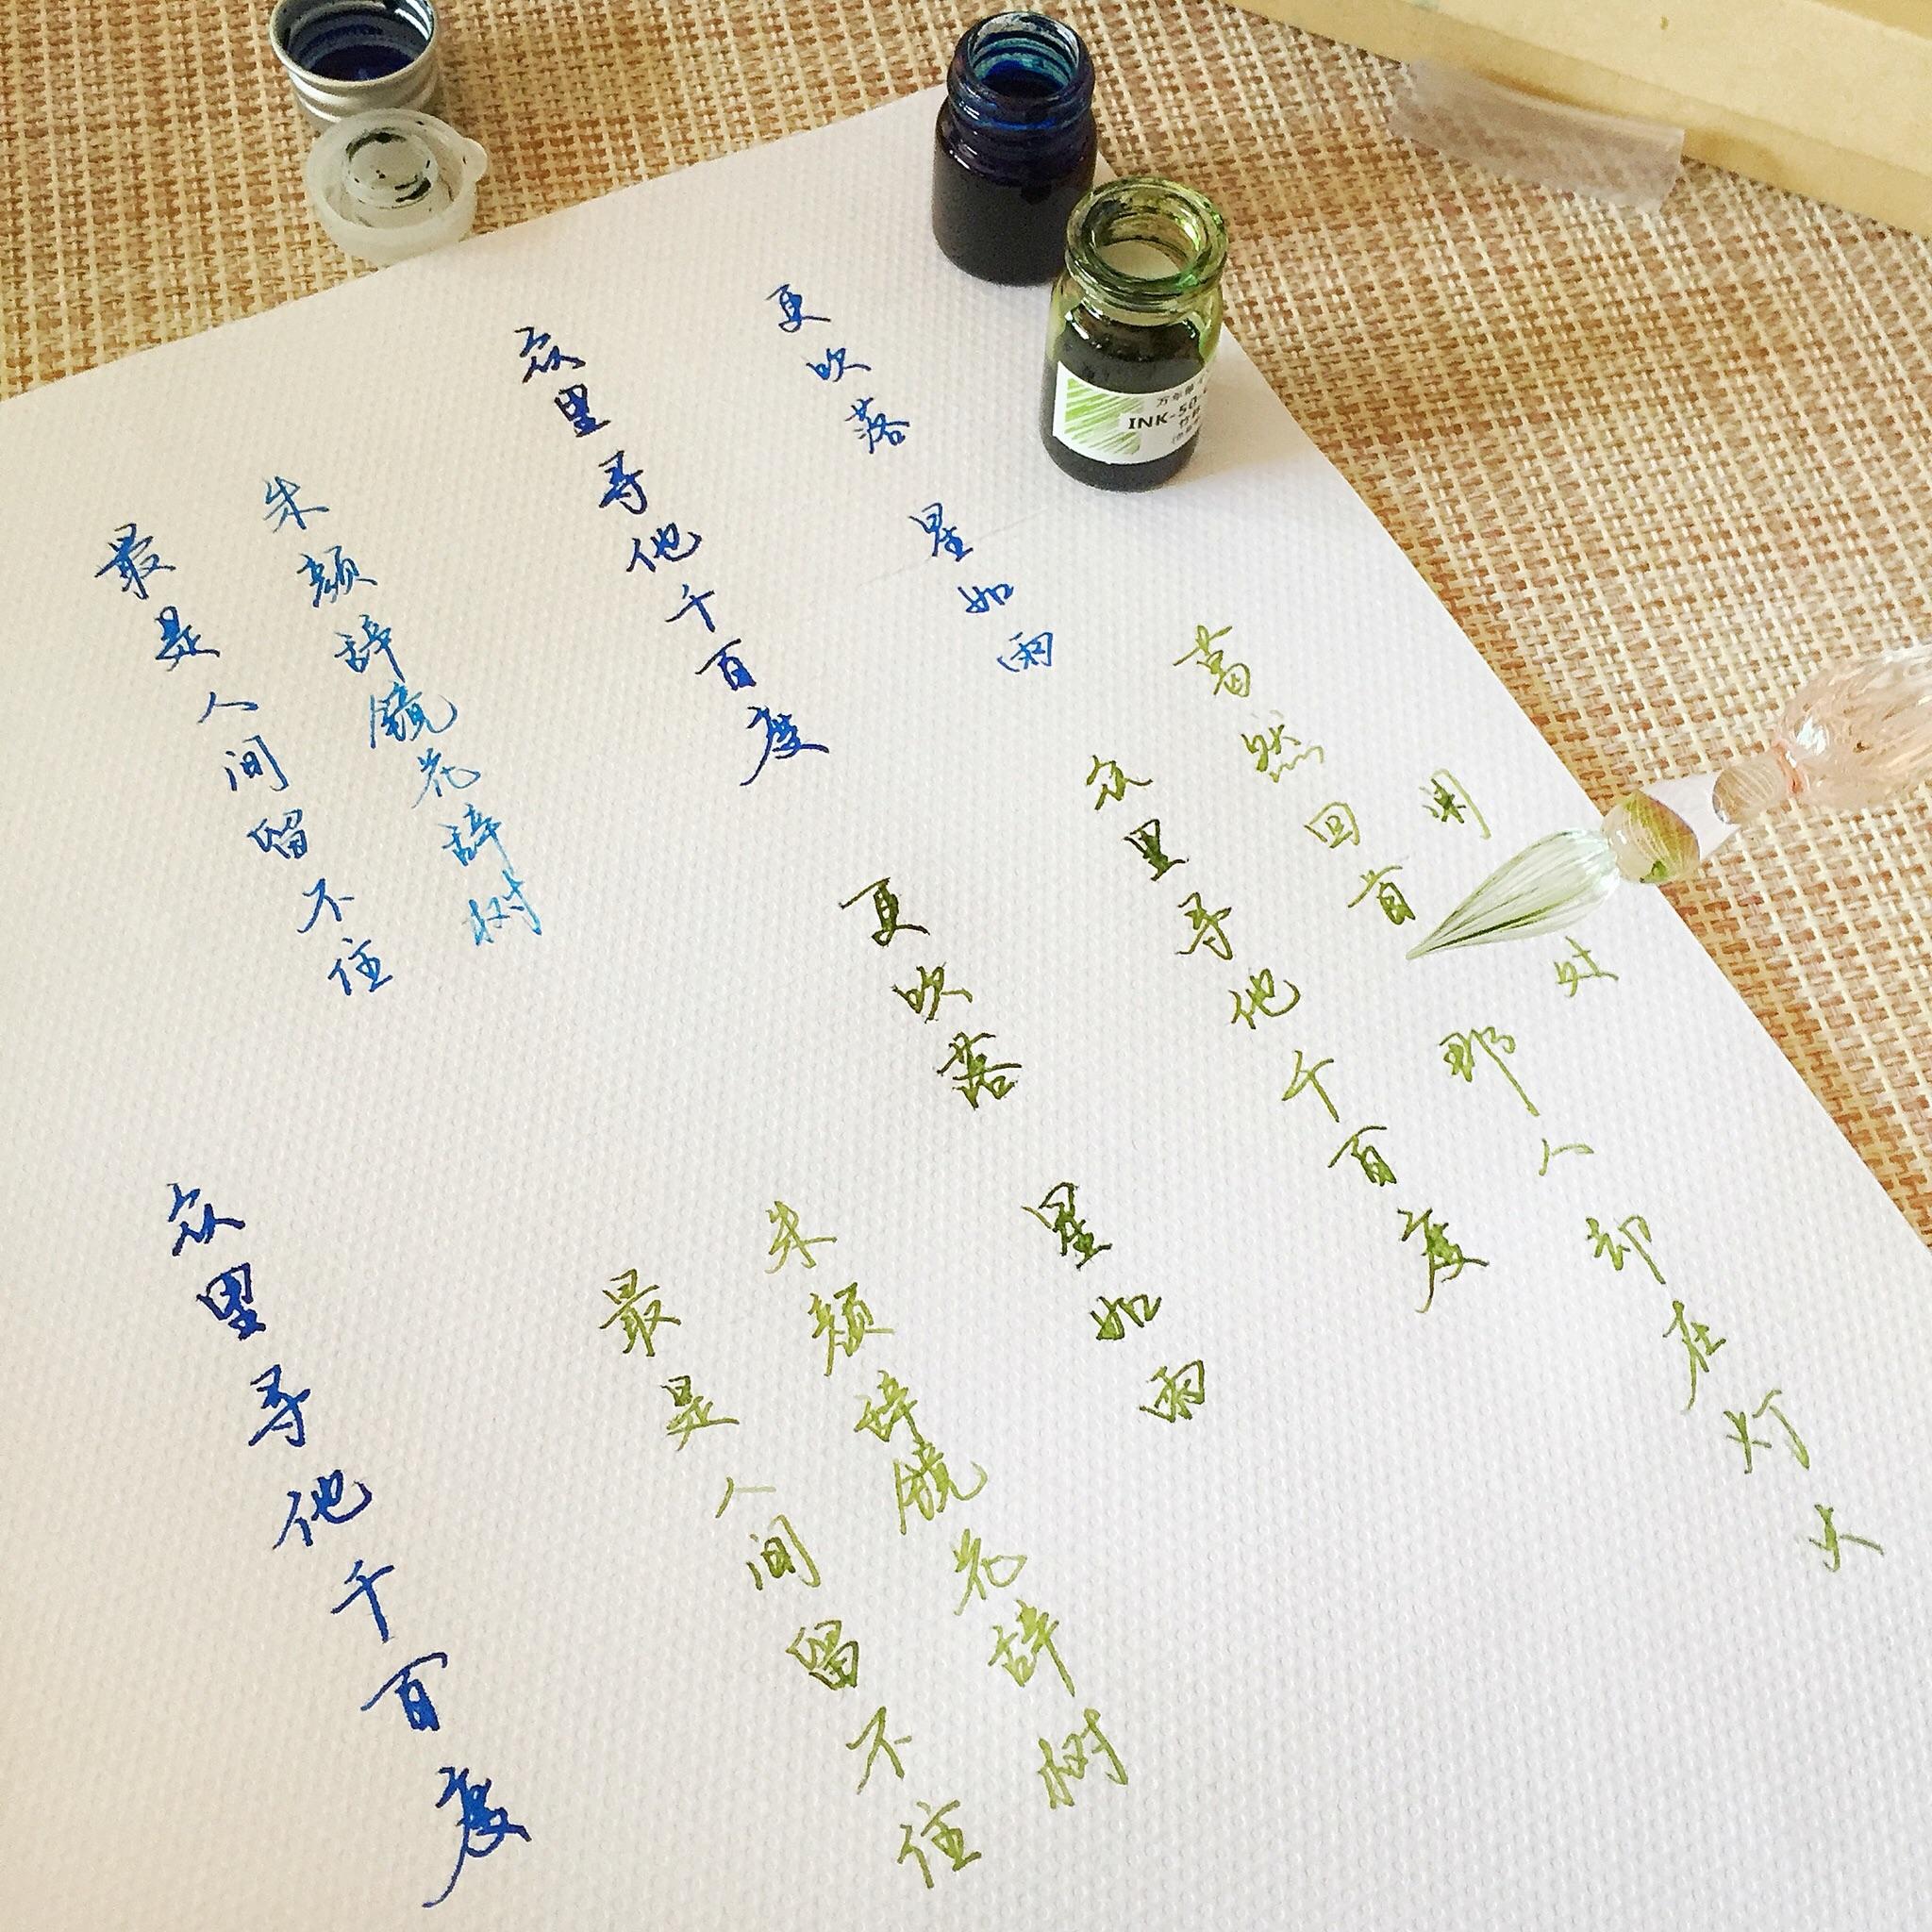 最是人间留不住
朱颜辞镜花辞树
众里寻他千百度
更吹落 星如雨
众里寻他千百度
最是人间留不住
朱颜辞镜花辞树
更吹落 星如雨
众里寻他千百度
蓦然回首 那人却在灯火
处
INK-50